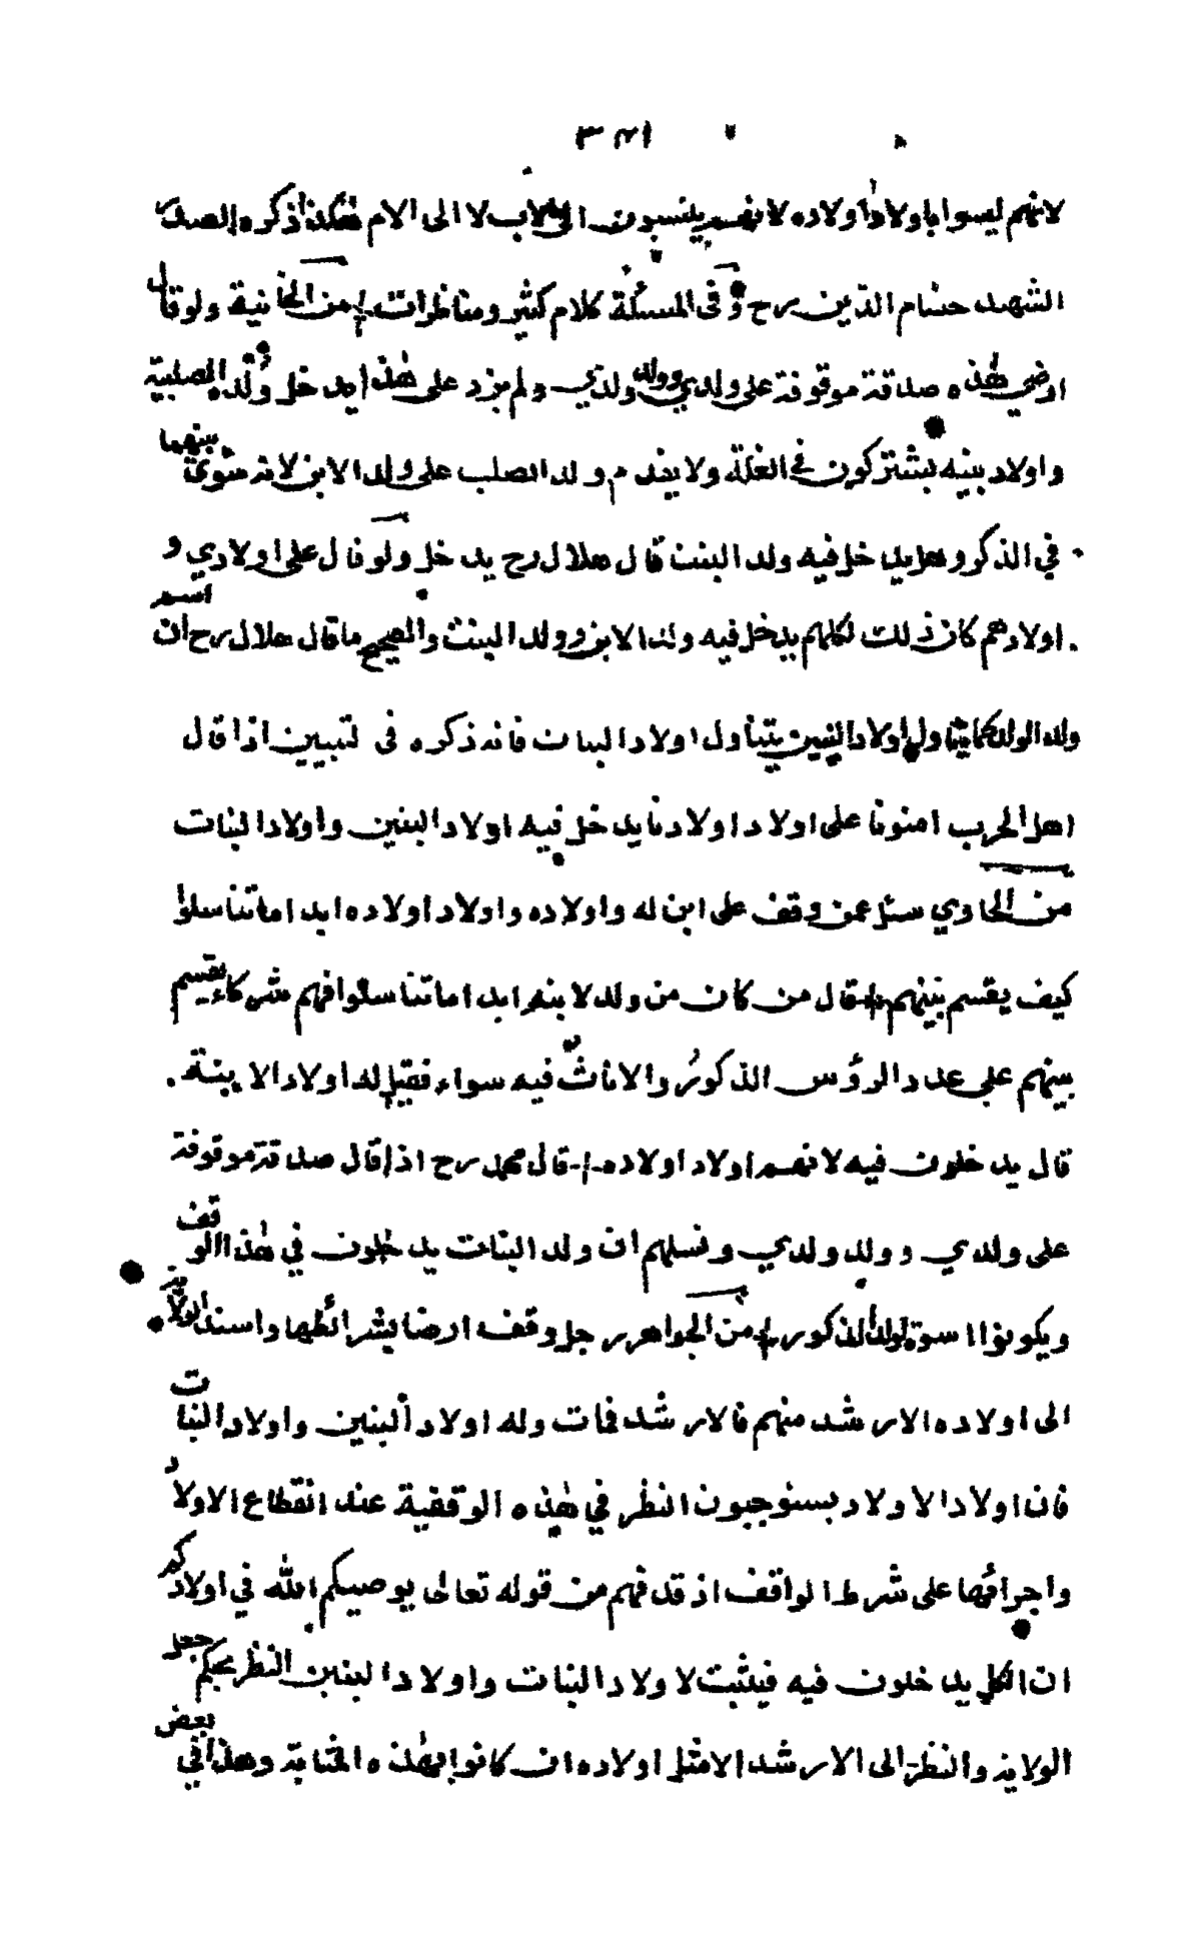 ٣٢١
لانهم ليسوا باولاد اولاده لانهم ينسبون الى الاب لا الى الام هكذا ذكره الصدر
الشهيد حسام الدين رح وفى المسئلة كلام كثير ومناظرات من الخانية ولوقال
ارضي هذه صدقة موقوفة على ولدي وولد ولدي ولم يزد على هذا يدخل ولده لصلبه
واولاد بنيه يشتركون في الغلة ولا يقدم ولد الصلب على ولد الابن لانه سوى بينهما
في الذكر وهل يدخل فيه ولد البنت قال هلال رح يدخل ولو قال على اولادي و
اولادهم كان ذلك لكلهم يدخل فيه ولد الابن وولد البنت والصحيح ما قال هلال رح ان اسم
ولد الولد كما يتناول اولاد البنين يتناول اولاد البنات فانه ذكره فى لتبيين اذا قال
اهل الحرب امنونا على اولاد اولادنا يدخل فيه اولاد البنين واولاد البنات
من الحاوي سئل عمن وقف على ابن له واولاده واولاد اولاده ابدا ماتناسلوا
كيف يقسم بينهم قال من كان من ولد لابنه ابدا ماتناسلوا فهم شركاء يقسم
بينهم على عدد الرؤس الذكور والاناث فيه سواء فقيل له اولاد الابنة
قال يدخلون فيه لانهم اولاد اولاده قال محمد رح اذا قال صدقة موقوفة
على ولدي وولد ولدي ونسلهم ان ولد البنات يدخلون في هذا الوقف
ويكونوا اسوة لولد الذكور من الجواهر رجل وقف ارضا بشرائطها واسند الولاية
الى اولاده الارشد منهم فالارشد فمات وله اولاد البنين واولاد البنات
فان اولاد الاولاد يستوجبون النظر في هذه الوقفية عند انقطاع الاولاد
واجرائها على شرط الواقف اذ قد فهم من قوله تعالى يوصيكم الله في اولادكم
ان الكل يدخلون فيه فيثبت لاولاد البنات واولاد البنين النظر بحكم جعل
الولاية والنظر الى الارشد الامثل اولاده ان كانوا بهذه المثابة وهذا في بعض